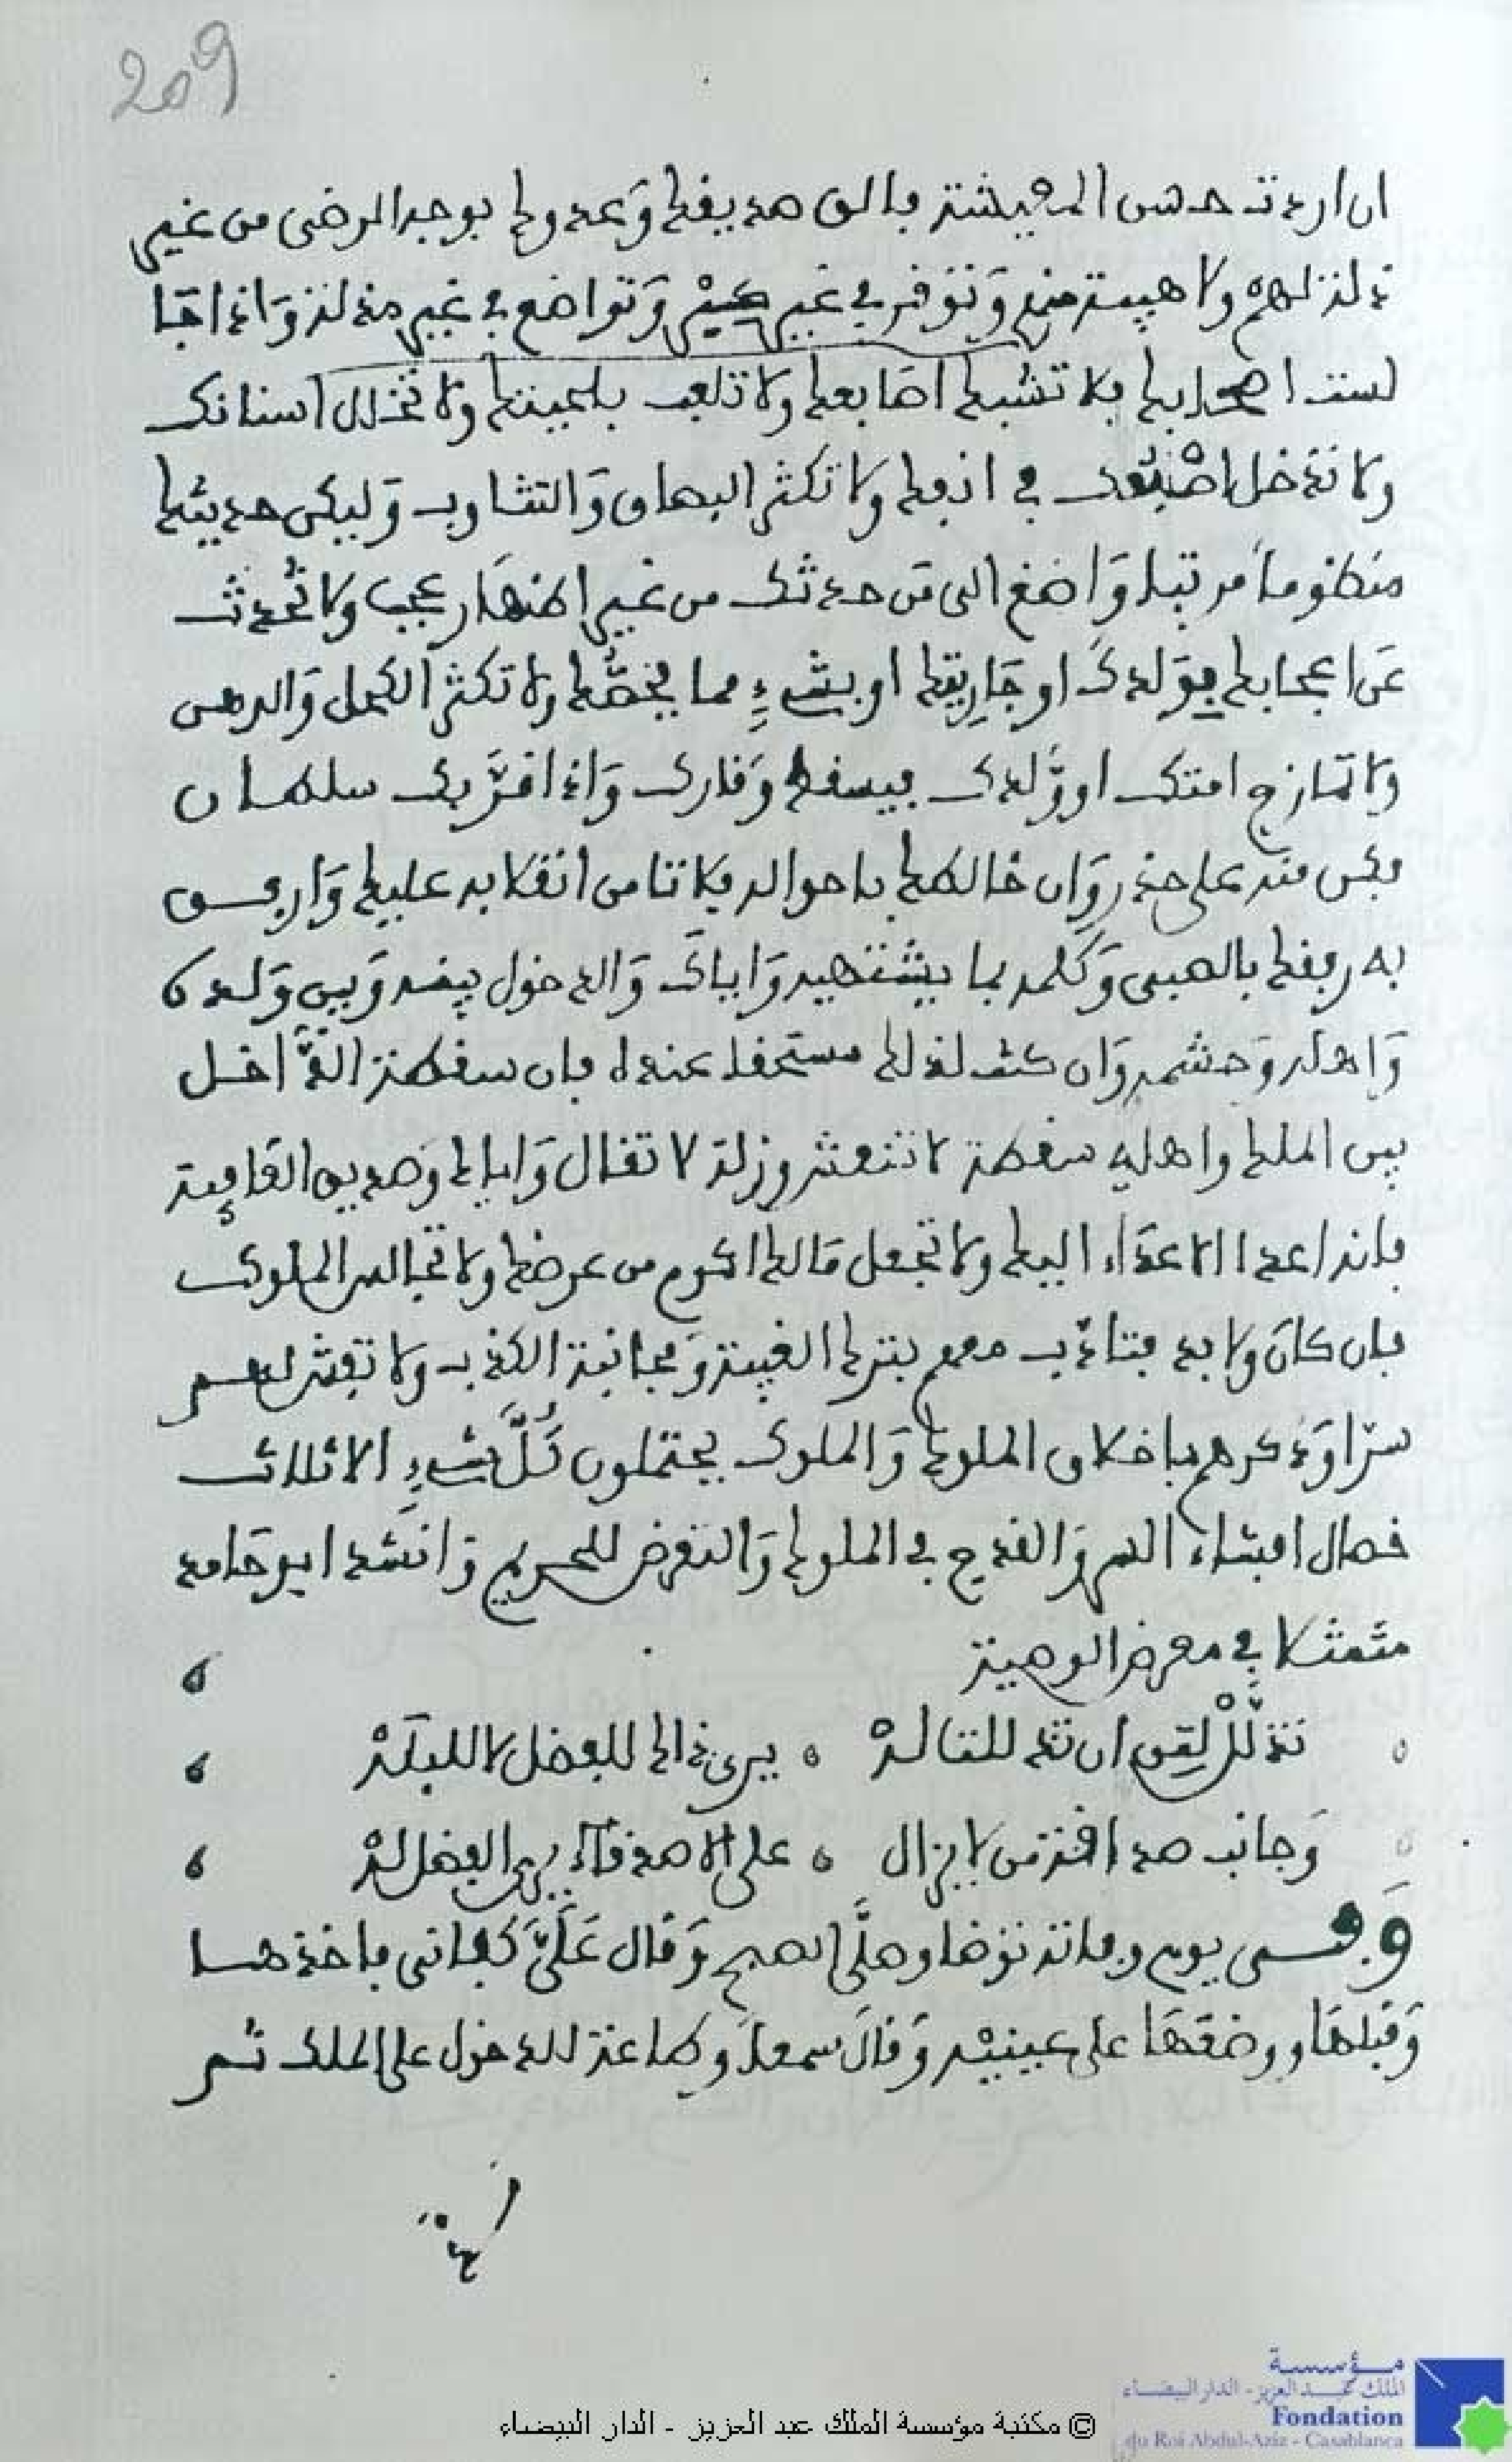 209
ان اردت حسن المعيشة فالق صديقك وَعدوك بوجه الرضى من غير
ذلة لهم ولا هيبة منهم وَتوَقر في غير كبْر وَتواضع في غير مذلة وَاذا جَا
لست اصحابك فلا تشبك اصَابعك ولا تلعب بلحيتك ولا تخلل اسنانك
ولا تدخل اصْبُعك في انفك ولا تكثر البصاق وَالتثاوب وَليكن حديثك
منظوما مرتبا وَاصغ الى مَن حدثك من غير اظهَار عجب ولا تُحدث
عَن اعجابك بوَلدكَ او جَارِيتك او بشيءٍ مما يخصُّك ولا تكثر الكحل وَالدهن
ولا تمازح امتك او وَلدك فيسقط وَقارك وَاذا قرَّبك سلطان
فكن منه على حذر وَان خالطك باحواله فلا تامن انقلابه عليك وَارفق
به رفقك بالصبى وَكلمه بما يشتهيه وَاياكَ وَالدخول بينه وَبين وَلده
وَاهله وَحشمه وَان كنت لذلك مستحقا عنده فان سقطة الدَّاخل
بين الملك واهله سقطة لا تنعش وزلة لا تقال وَاياك وَصديق العَافية
فانه اعدا الاعدَاء اليك ولا تجعل مَالك اكرم من عرضك ولا تجالس الملوك
فان كان ولا بد فتادّب معهم بترك الغيبة وَمجانبة الكذب ولا تفش لهم
سرّا وَذكرهم باخلاق الملوك وَالملوك يحتملون كُلَّ شيءٍ الا ثلاث
خصال افشاء السر وَالقدح في الملوك وَالتعرض للحريم وَانشد ابو حَامد
متمثلا في معرض الوصية
تذلّلْ لمَن ان تذللتَ لهْ ٥ يرى ذاك للفضل لا للبلَهْ
وَجانب صداقة من لا يزال ٥ على الاصدقآء يرى الفضل لهْ
وَفى يوم وفاته توَضا وصلَّى الصبح وَقال عَلَيَّ كفانى فاخذهسا
وَقبلهَا ووضعَهَا على عينيْه وَقالَ سمعاً وَطاعة للدخول على الملك ثم
مؤسسة
الملك عبد العزيز - الدار البيضاء
Fondation
du Roi Abdul-Aziz - Casablanca
© مكتبة مؤسسة الملك عبد العزيز - الدار البيضاء